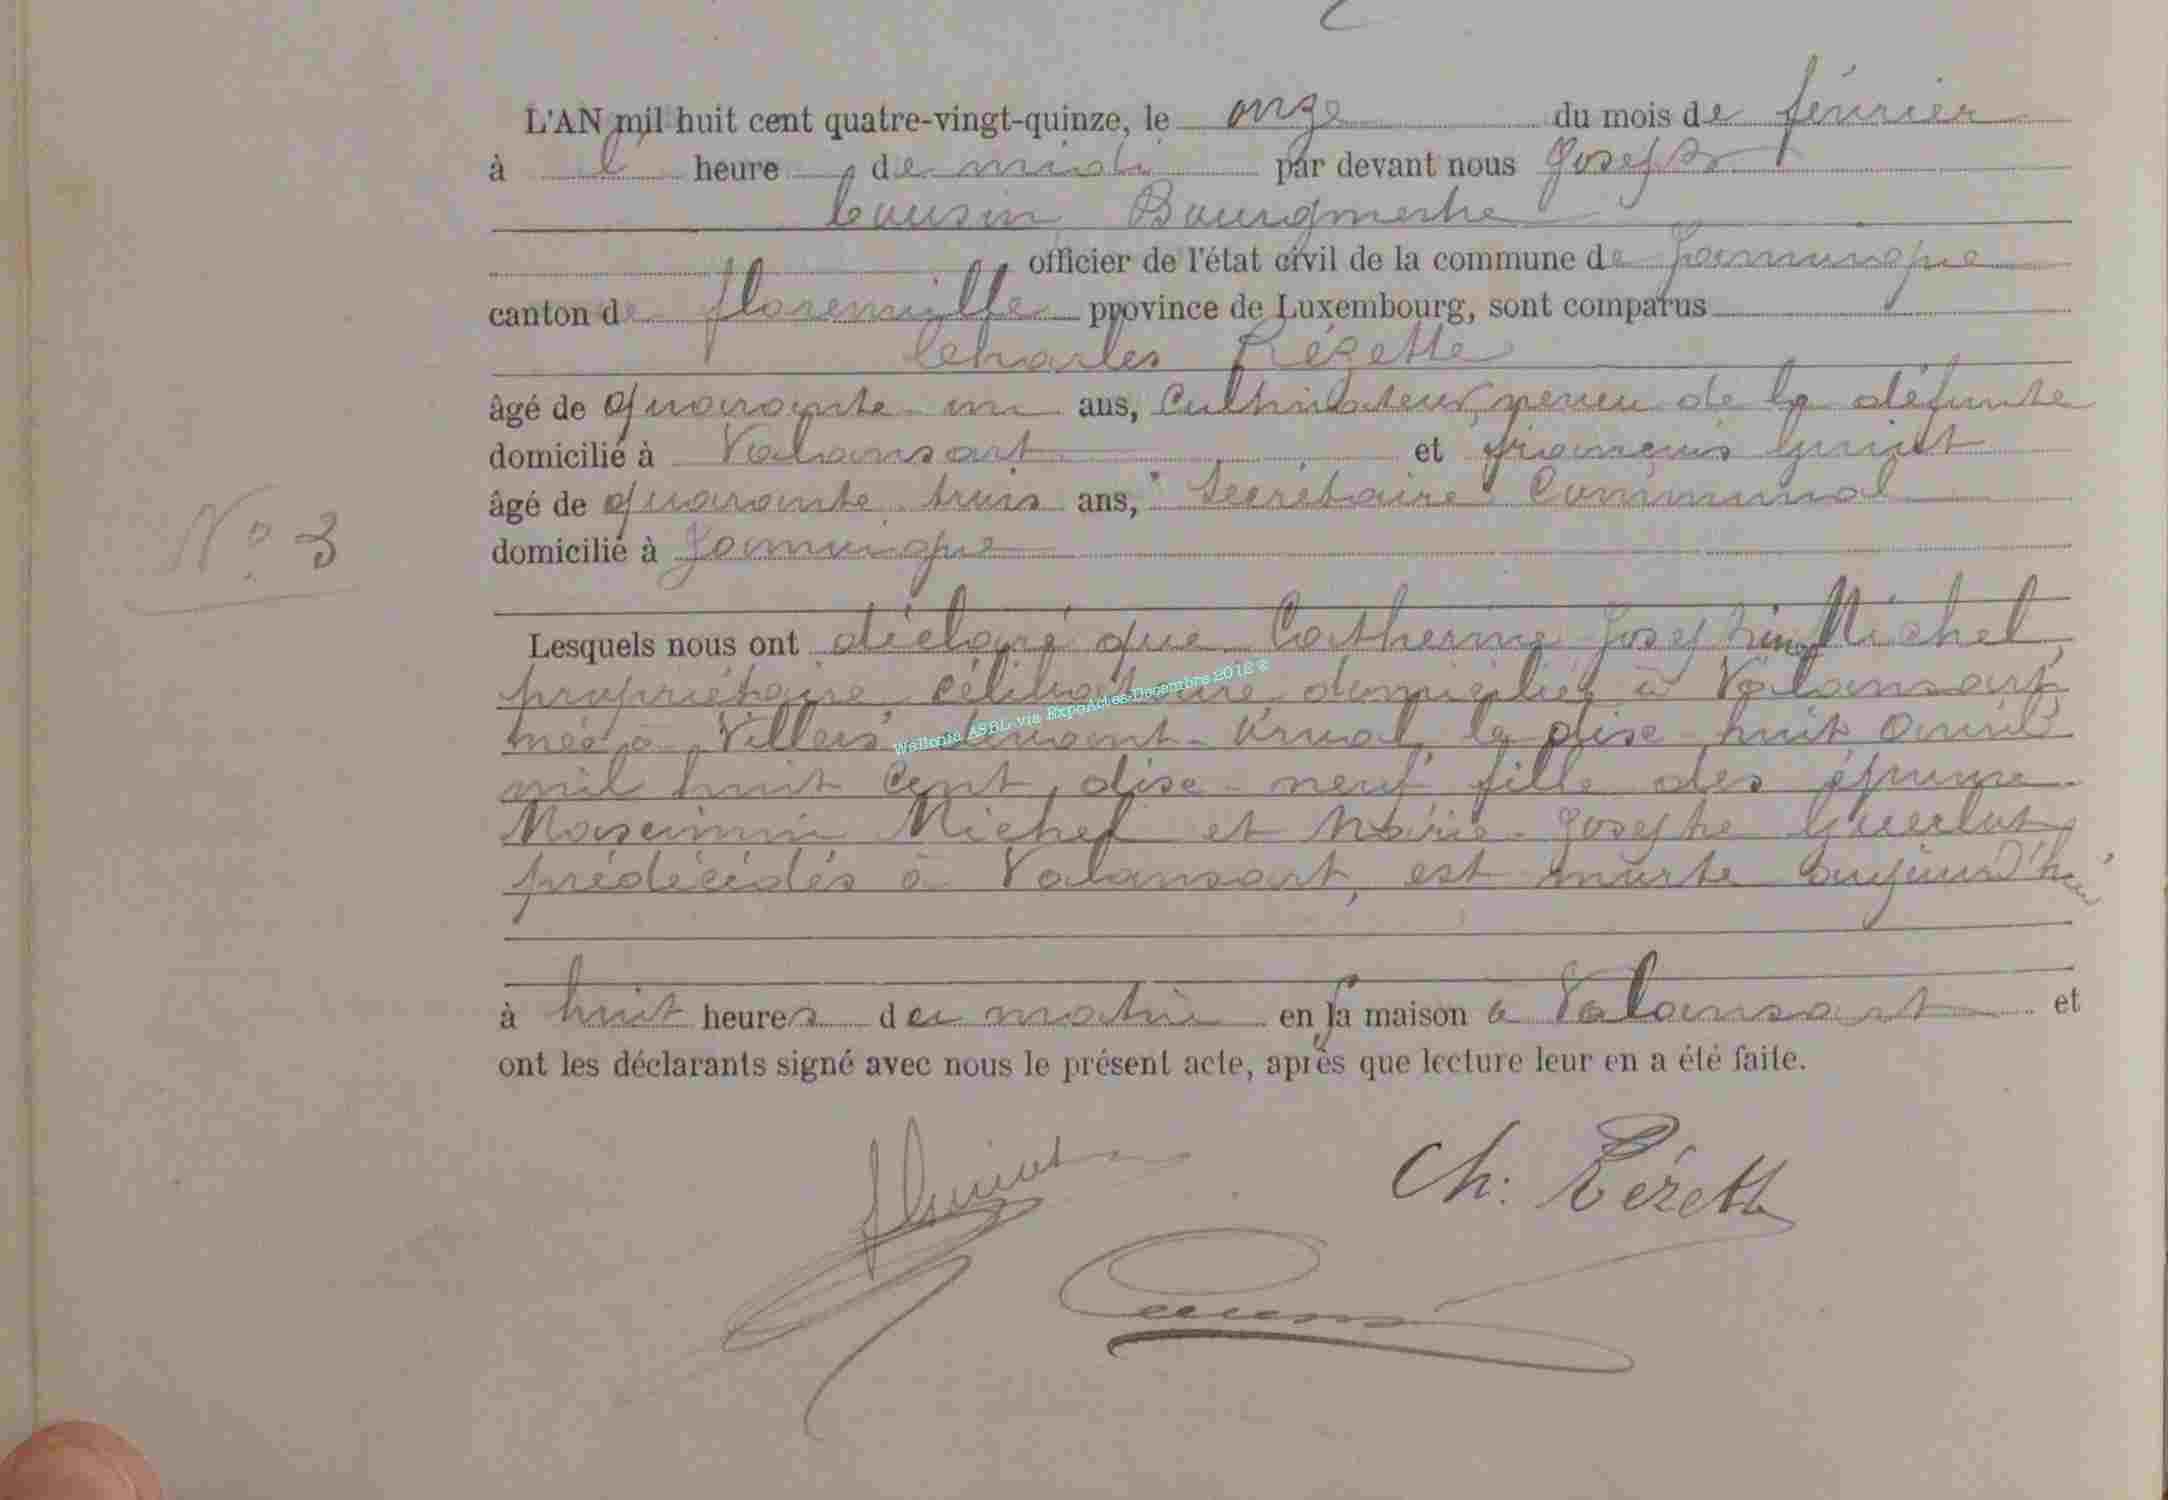 L'AN mil huit cent quatre-vingt-quinze, le onze du mois de février
à l heure de midi par devant nous Joseph
Cousin Bourgmestre
officier de l'état civil de la commune de Jamoigne
canton de florenville province de Luxembourg, sont comparus
Charles Rézette
âgé de quarante un ans, Cultivateur, neveu de la défunte
domicilié à Valansart et françois
âgé de quarante trois ans, Secrétaire Communal
domicilié à Jamoigne
N° 3
Lesquels nous ont déclaré que Catherine Josephine Michel,
propriétaire, célibataire, domiciliée à Valansart,
née à Villers devant Orval, le dise huit avril
mil huit cent dise-neuf fille des époux
Maximin Michel et Marie-Josephe
prédécédés à Valansart, est morte aujourd'hui
à huit heures du matin en sa maison à Valansart et
ont les déclarants signé avec nous le présent acte, après que lecture leur en a été faite.
Ch: Rézette
Cousin
Wallonia ASBL via ExpoActes-Decembre 2018 ©